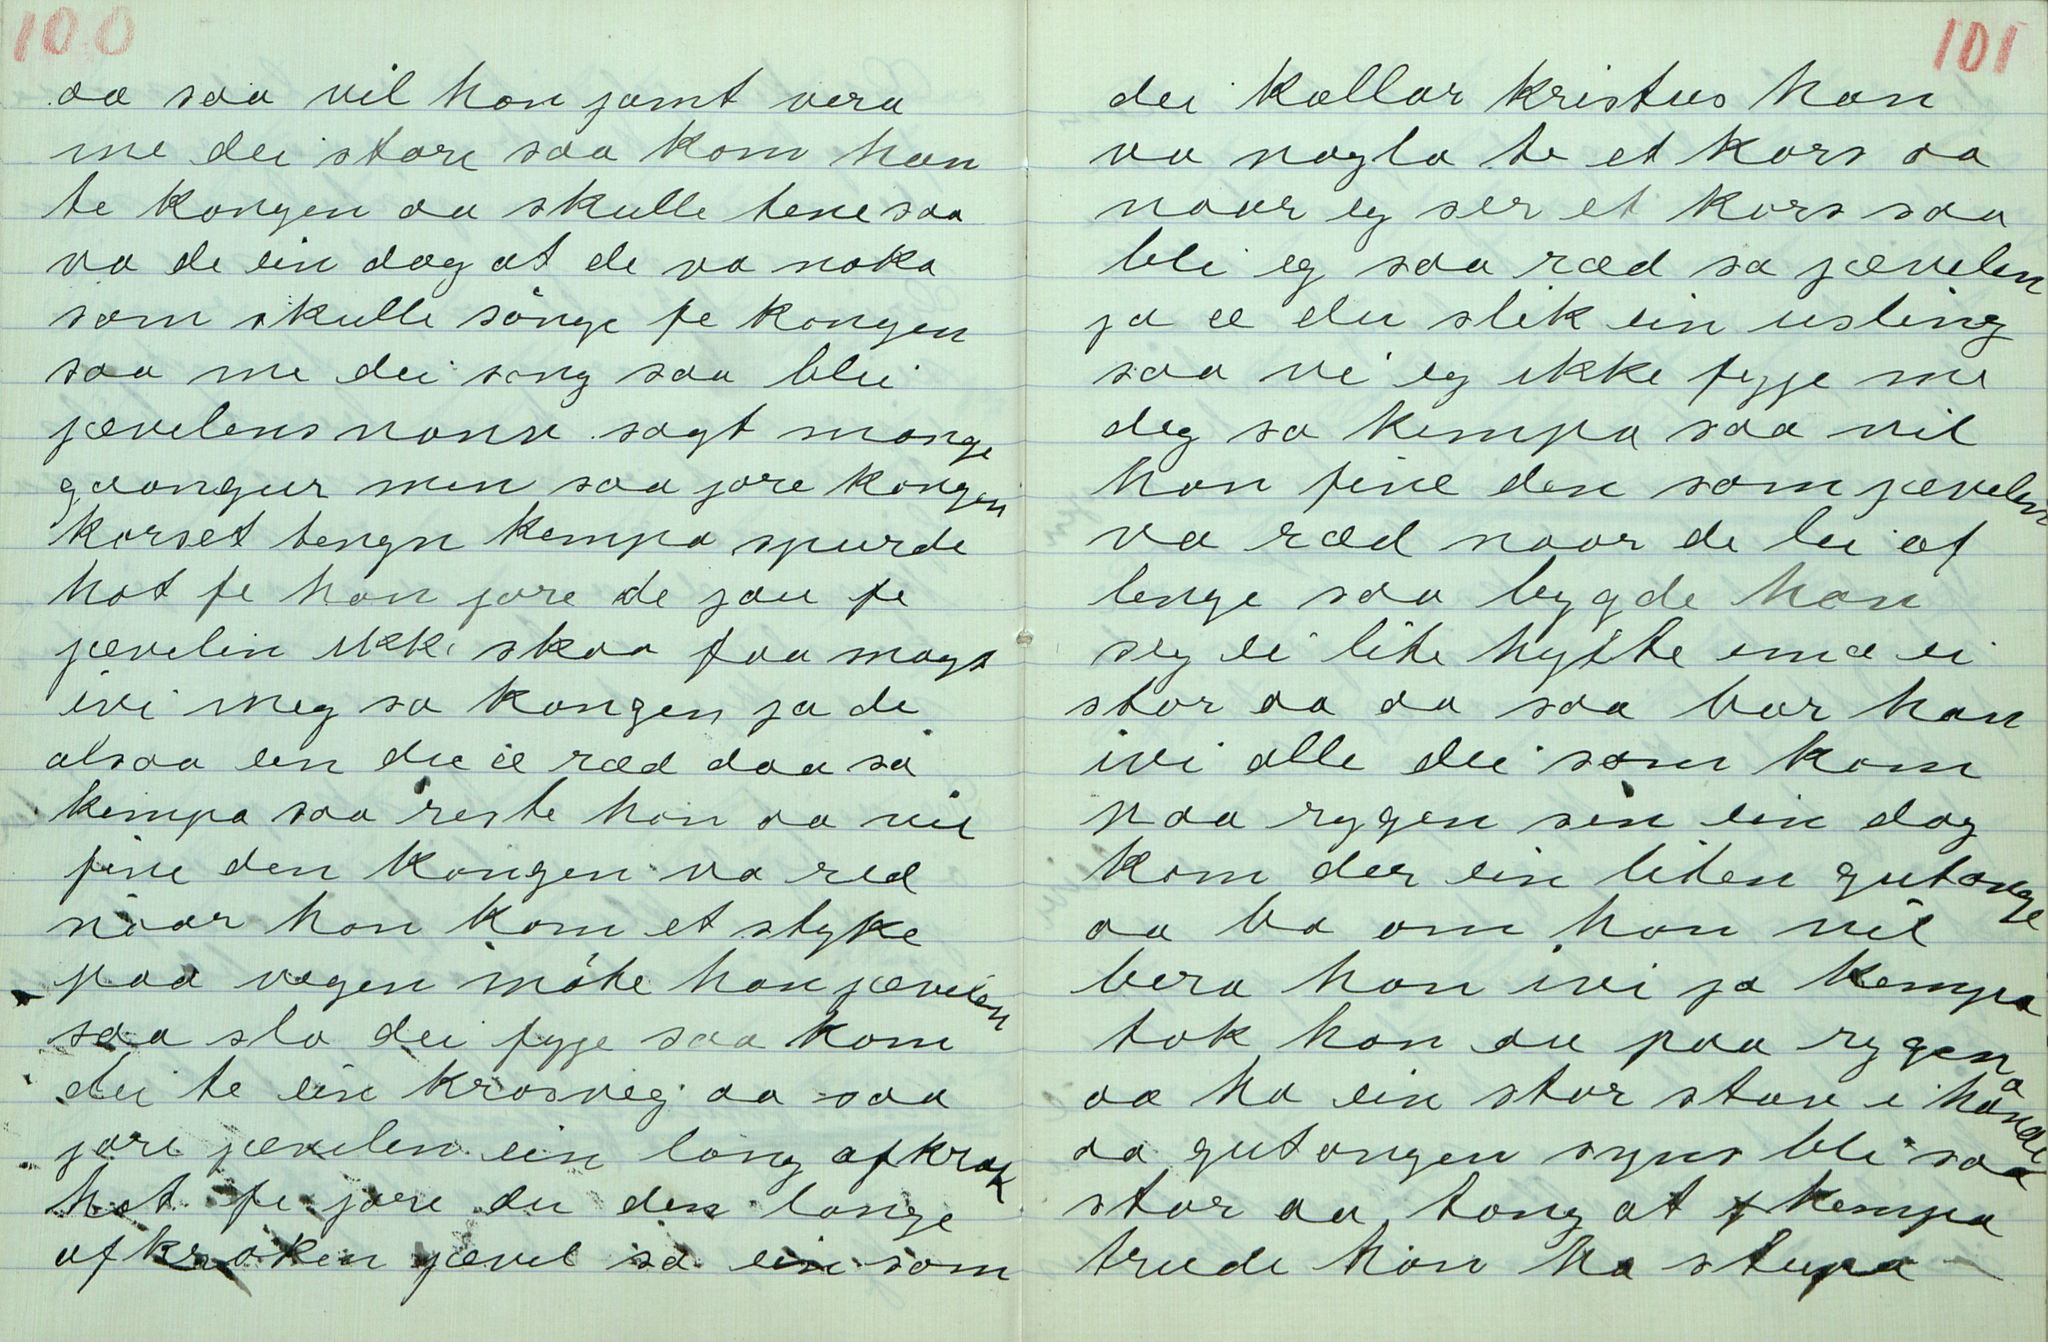 100
aa saa vil han jamt vera
me dei store saa kom han
te kongen aa skulle tene saa
va de ein dag at de va noka
som skulle sónge fe kongen
saa me dei sang saa blei
jævelens navn sagt mange
gaangur men saa jore kongen
korset tengn kempa spurde
hot fe han jore de jau fe
jævelin ikke skaa faa magt
ivi meg sa kongen ja de
alsaa ein du æ ræd daa sa
kempa saa reste han aa vil
fine den kongen va red
naar han kom et styke
paa vægen móte han jævelen
saa slo dei fygje saa kom
dei te ein krosveg aa saa
jore jævelen ein lang afkrok
hot fe jore du den lange
afkroken jævel sa ein som
101
dei kallar kristus han
va nagla te et kors aa
naar eg ser et kors saa
bli eg saa ræd sa jævelen
ja æ du slik ein usling
saa vi eg ikke fygje me
deg sa kempa saa vil
han fine den som jævelen
va ræd naar de lei af
lenge saa bygde han
seg ei lite hytte imæ ei
stor aa aa saa bar han
ivi alle dei som kom
paa rygen sin ein dag
kom der ein liten gutonge
aa ba om han vil
bera han ivi ja kempa
tok han aa paa rygen
aa ha ein stor stav i haande
aa gutongen syns bli saa
stor aa tong at kempa
trude han ha stupa